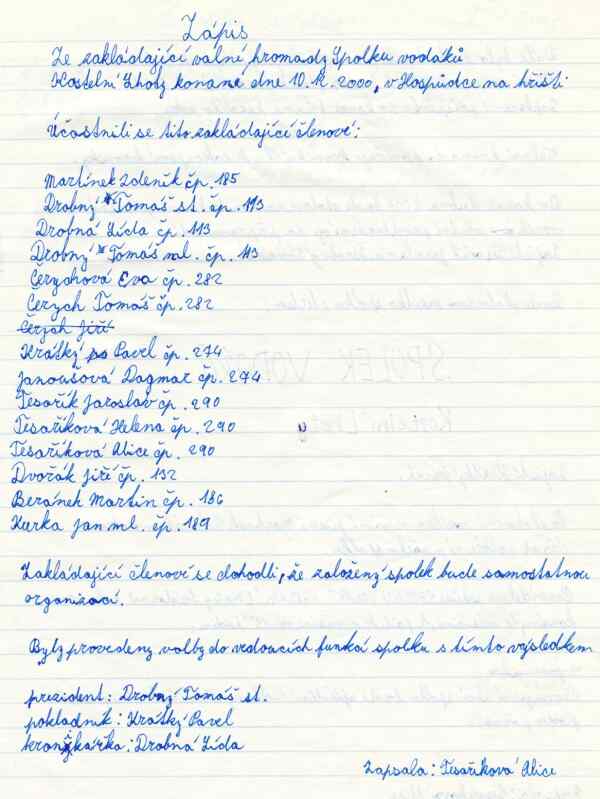 Zápis
Ze zakládající valné hromady Spolku vodáků
Kostelní Lhoty konané dne 10.11.2000, v Hospůdce na hřišti
Účastnili se tito zakládající členové:
Martínek Zdeněk čp. 185
Drobný Tomáš st. čp. 113
Drobná Lída čp. 113
Drobný Tomáš ml. čp. 113
Čerychová Eva čp. 282
Čerych Tomáš čp. 282
Čerych Jiří
Krátký Pavel čp. 274
Janoušová Dagmar čp. 274
Tesařík Jaroslav čp. 290
Tesaříková Helena čp. 290
Tesaříková Alice čp. 290
Dvořák Jiří čp. 132
Beránek Martin čp. 186
Kurka Jan ml. čp. 189
Zakládající členové se dohodli, že založený spolek bude samostatnou
organizací.
Byly provedeny volby do vedoucích funkcí spolku s tímto výsledkem
prezident: Drobný Tomáš st.
pokladník: Krátký Pavel
kronikářka: Drobná Lída
Zapsala: Tesaříková Alice